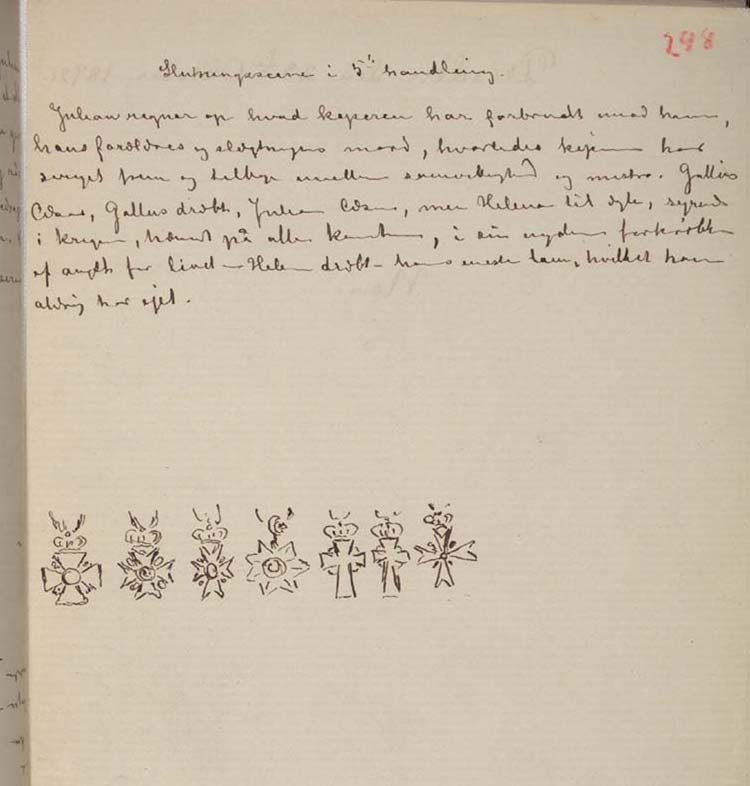 298
Slutningsscene i 5' handling.
Julian regner op hvad kejseren har forbrudt mod ham,
hans forældres og slægtninges mord, hvorledes kejseren har
svinget frem og tilbage mellem og mistro. Gallus
Cæsar, Gallus dræbt, Julian Cæsar, men Helena til ægte, sejrende
i krigen, hædret på alle kanter, i sin ungdom
af angst for livet – Helena dræbt – hans eneste lam, hvilket han
aldrig har ejet.